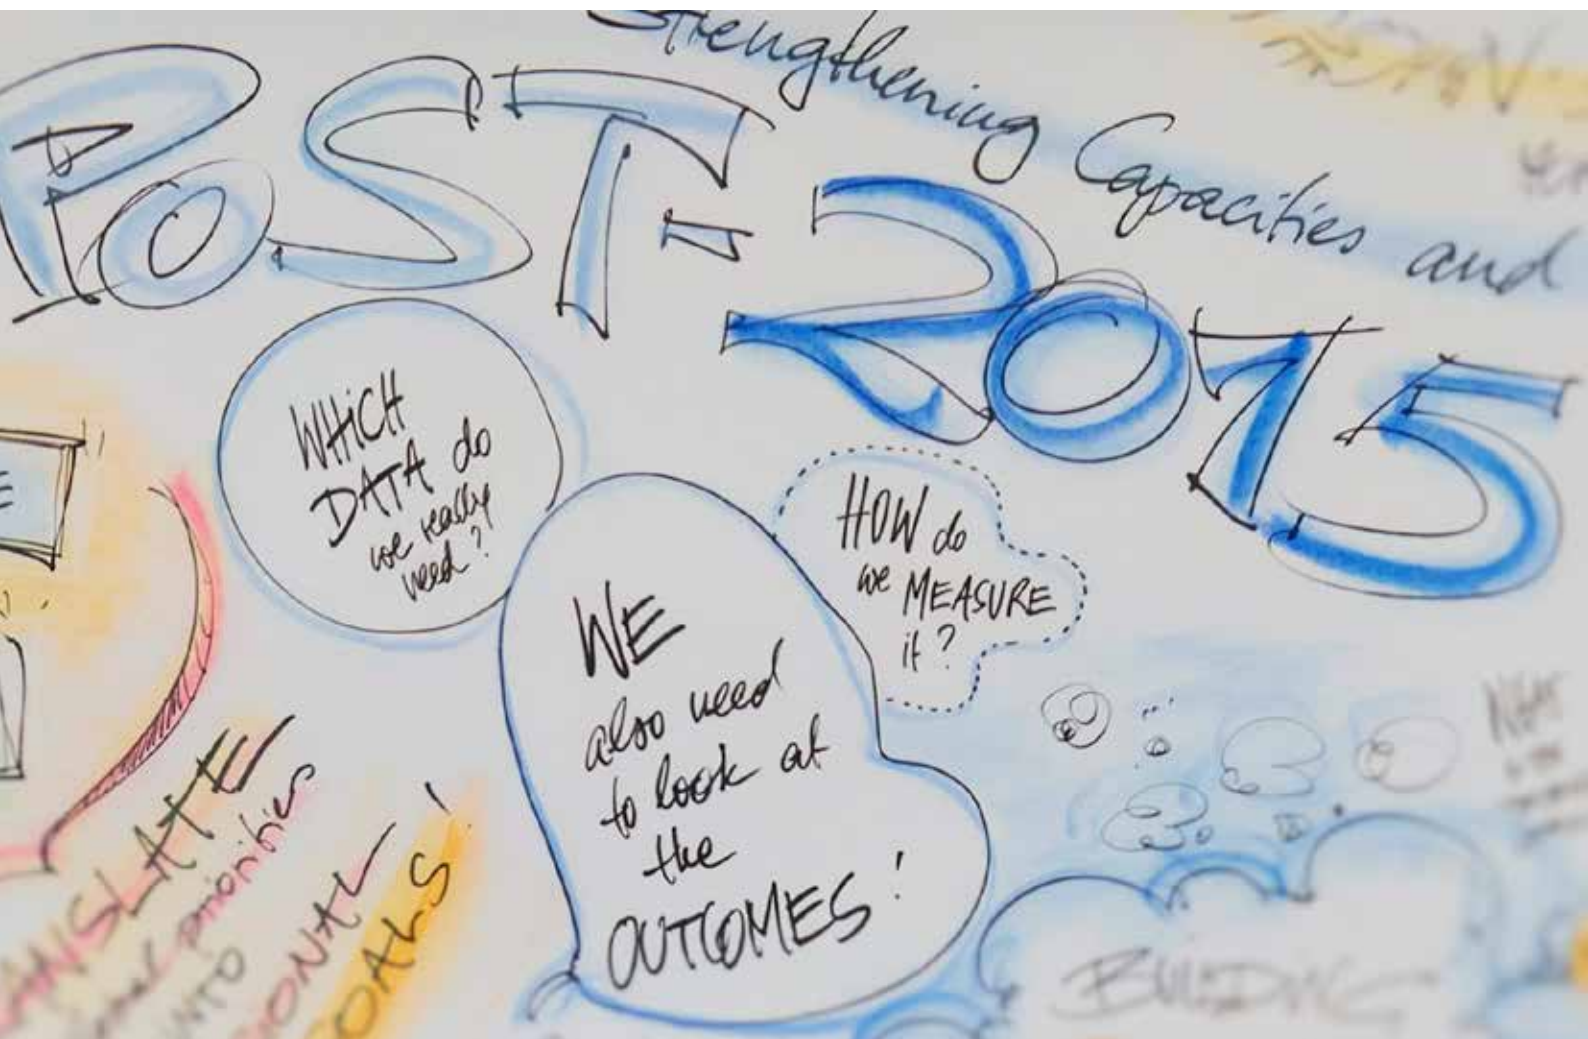 Strengthening Capacities and
POST-2015
WHICH
DATA do
we really
need?
HOW do
we MEASURE
it?
WE
also need
to look at
the
OUTCOMES!
priorities
INTO
GOALS!
BUILDING